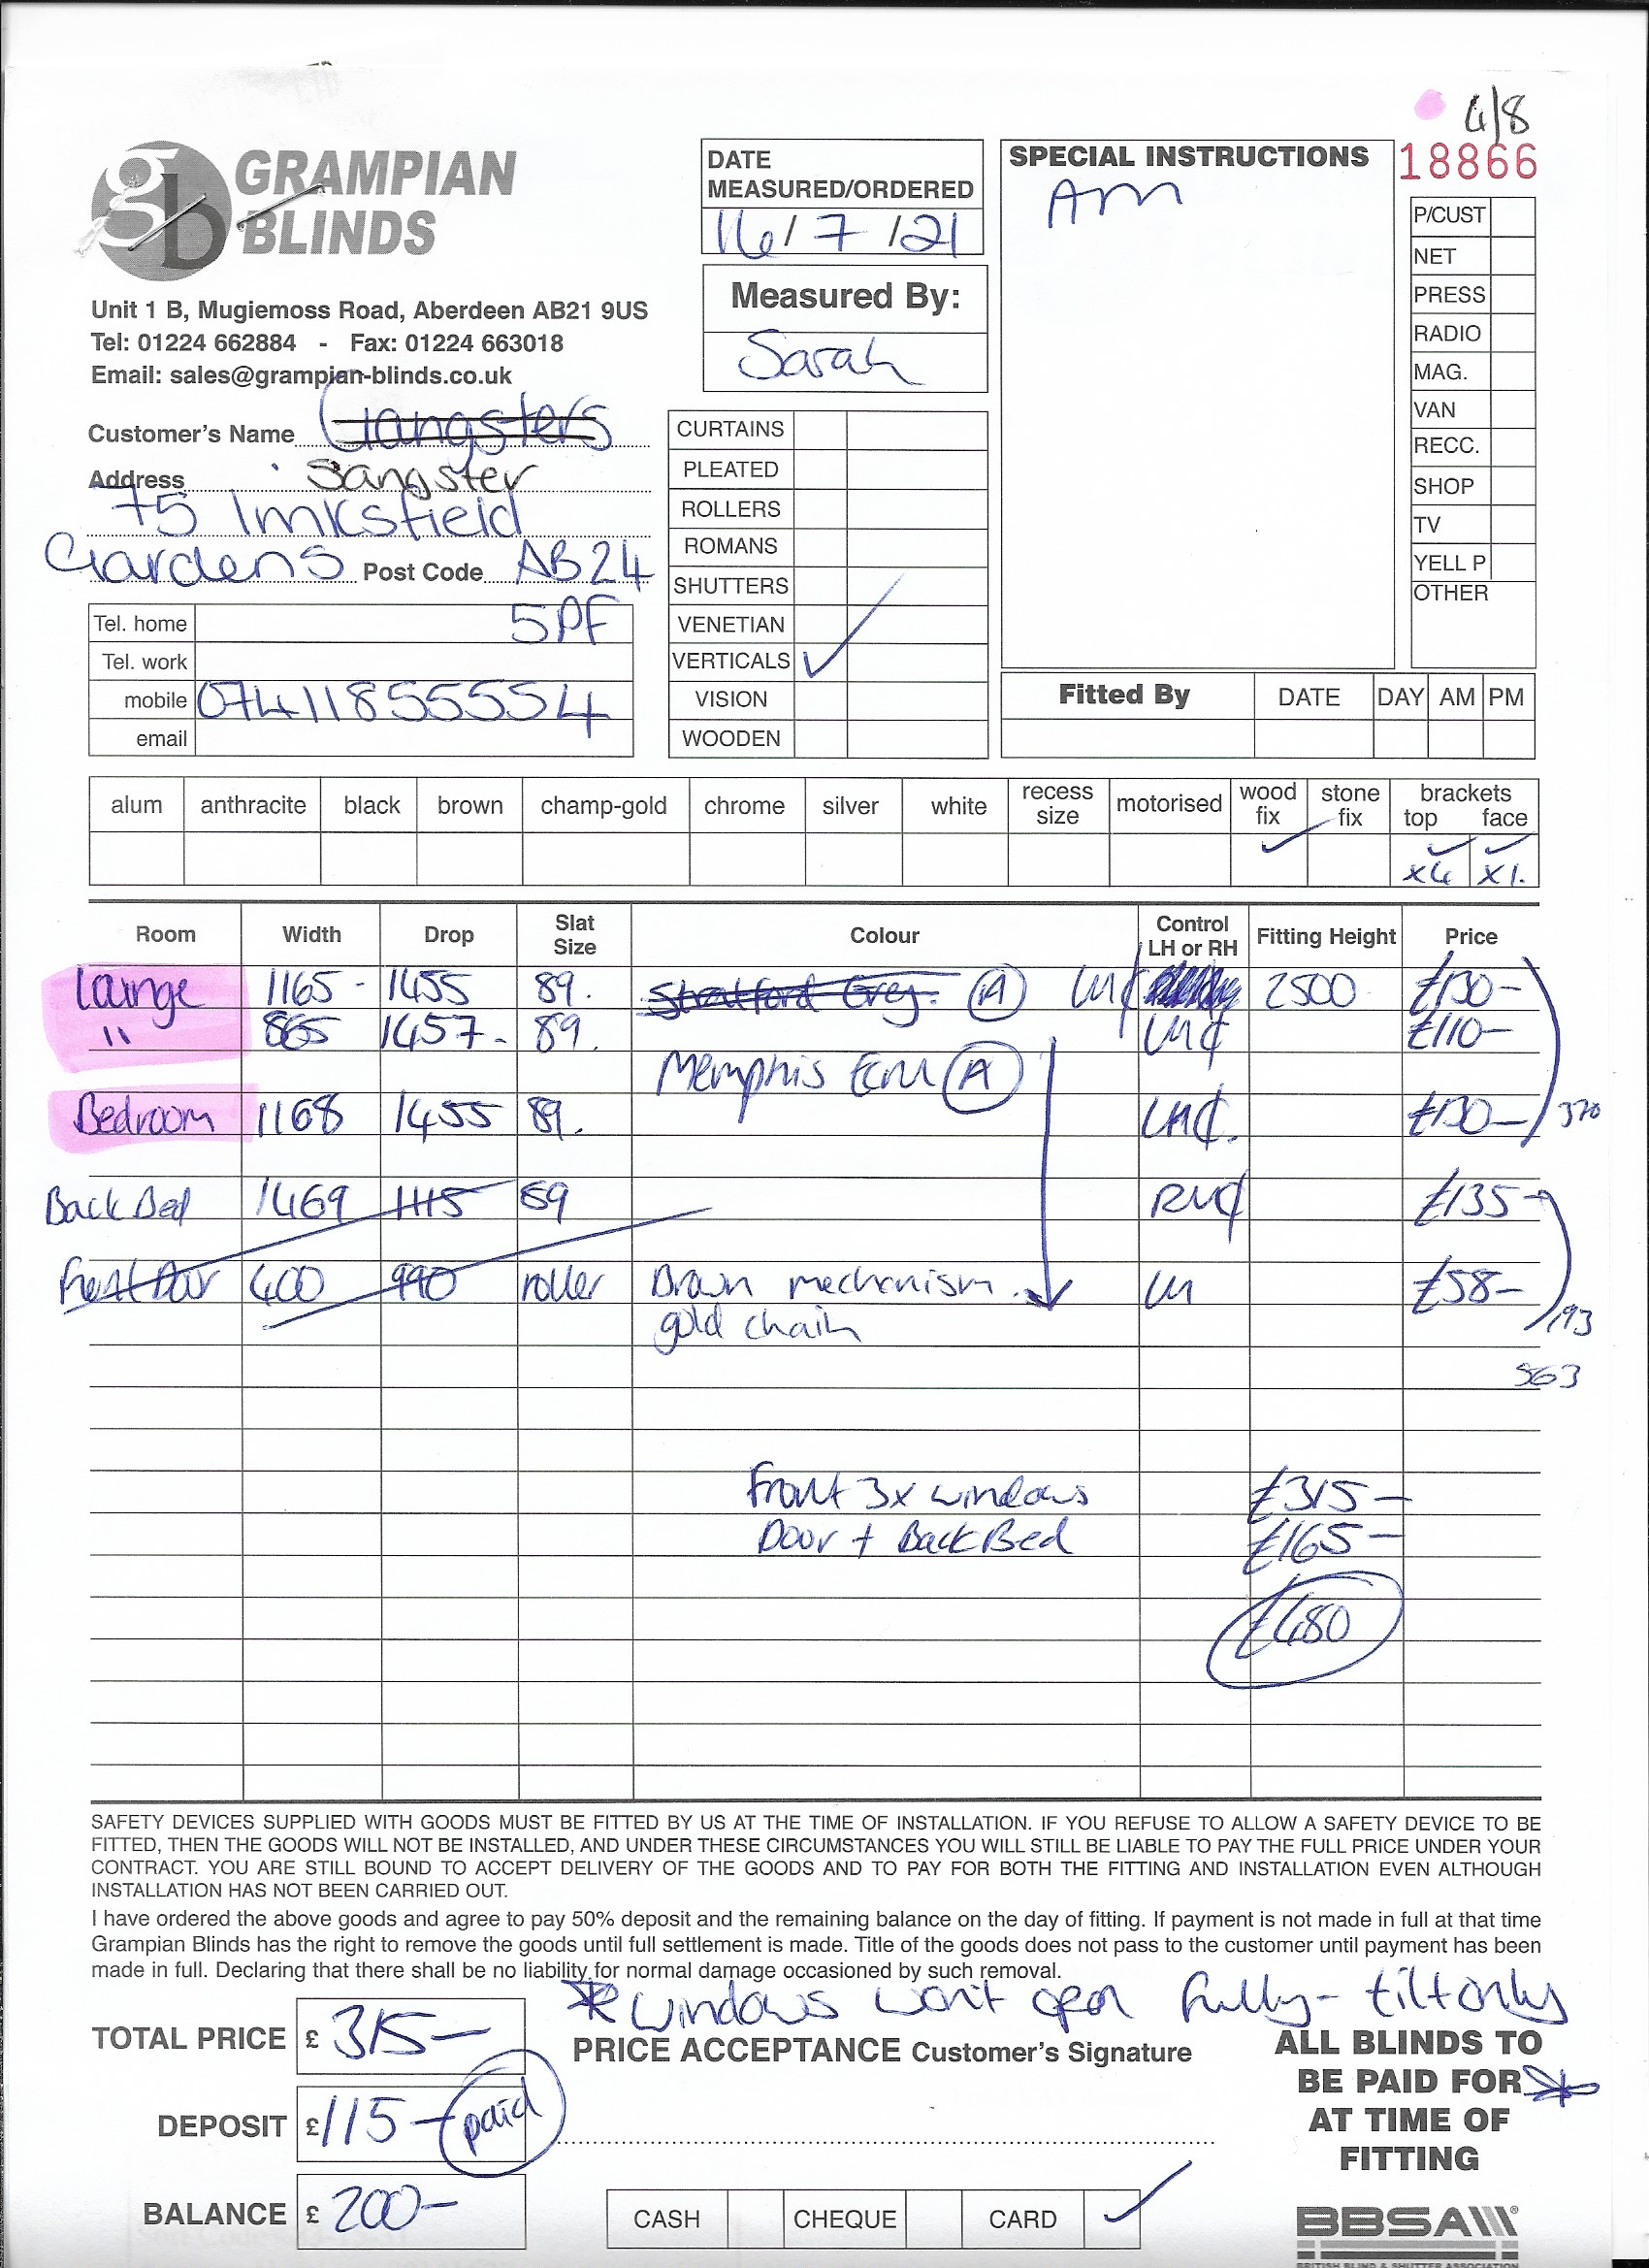 4/8
GRAMPIAN
BLINDS
gb
Unit 1 B, Mugiemoss Road, Aberdeen AB21 9US
Tel: 01224 662884 - Fax: 01224 663018
Email: sales@grampian-blinds.co.uk
DATE
MEASURED/ORDERED
16/7/21
Measured By:
Sarah
SPECIAL INSTRUCTIONS
Am
18866
P/CUST
NET
PRESS
RADIO
MAG.
VAN
RECC.
SHOP
TV
YELL P
OTHER
Customer's Name Gangsters
Address Sangster
75 Linksfield
Gardens Post Code AB24
5PF
Tel. home
Tel. work
mobile 07411855554
email
CURTAINS
PLEATED
ROLLERS
ROMANS
SHUTTERS
VENETIAN
VERTICALS ✓
VISION
WOODEN
Fitted By DATE DAY AM PM
alum anthracite black brown champ-gold chrome silver white recess size motorised wood fix stone fix brackets top face
✓ ✓ ✓
x4 x1.
Room Width Drop Slat Size Colour Control LH or RH Fitting Height Price
Lounge 1165 - 1455 89. Stratford Grey. A LH¢ 2500 £130-
" 865 1457- 89. LH¢ £110-
Memphis Ecru A
Bedroom 1168 1455 89. LH¢. £130- 370
Back Bed 1469 1115 89 RH¢ £135-
Front Door 400 990 roller Brown mechanism. LH £58-
gold chain 193
563
Front 3x windows £315-
Door + Back Bed £165-
£480
SAFETY DEVICES SUPPLIED WITH GOODS MUST BE FITTED BY US AT THE TIME OF INSTALLATION. IF YOU REFUSE TO ALLOW A SAFETY DEVICE TO BE
FITTED, THEN THE GOODS WILL NOT BE INSTALLED, AND UNDER THESE CIRCUMSTANCES YOU WILL STILL BE LIABLE TO PAY THE FULL PRICE UNDER YOUR
CONTRACT. YOU ARE STILL BOUND TO ACCEPT DELIVERY OF THE GOODS AND TO PAY FOR BOTH THE FITTING AND INSTALLATION EVEN ALTHOUGH
INSTALLATION HAS NOT BEEN CARRIED OUT.
I have ordered the above goods and agree to pay 50% deposit and the remaining balance on the day of fitting. If payment is not made in full at that time
Grampian Blinds has the right to remove the goods until full settlement is made. Title of the goods does not pass to the customer until payment has been
made in full. Declaring that there shall be no liability for normal damage occasioned by such removal.
* windows won't open fully - tilt only
TOTAL PRICE £ 315-
PRICE ACCEPTANCE Customer's Signature
DEPOSIT £ 115- paid
BALANCE £ 200-
CASH CHEQUE CARD ✓
ALL BLINDS TO
BE PAID FOR *
AT TIME OF
FITTING
BBSA®
BRITISH BLIND & SHUTTER ASSOCIATION